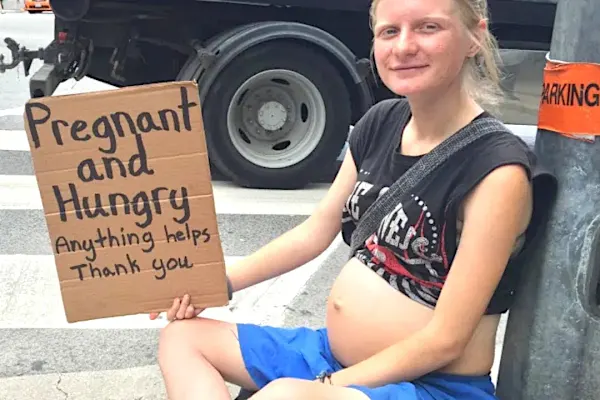 Pregnant
and
Hungry
Anything helps
Thank you
PARKING